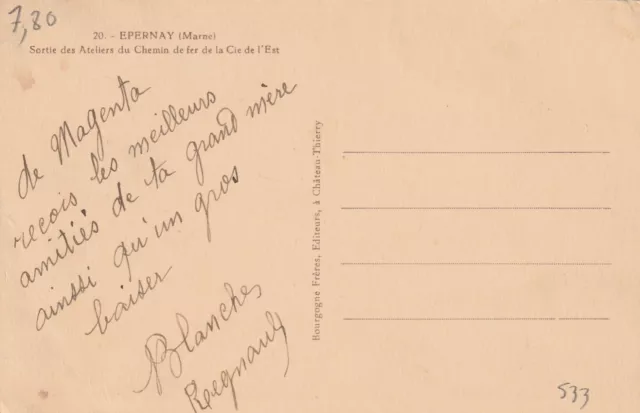 7,80
20. - EPERNAY (Marne)
Sortie des Ateliers du Chemin de fer de la Cie de l'Est
de Magenta
reçois les meilleurs
amitiés de ta grand mère
ainsi qu'un gros
baiser
Blanche
Regnault
Bourgogne Frères, Editeurs, à Château-Thierry
533